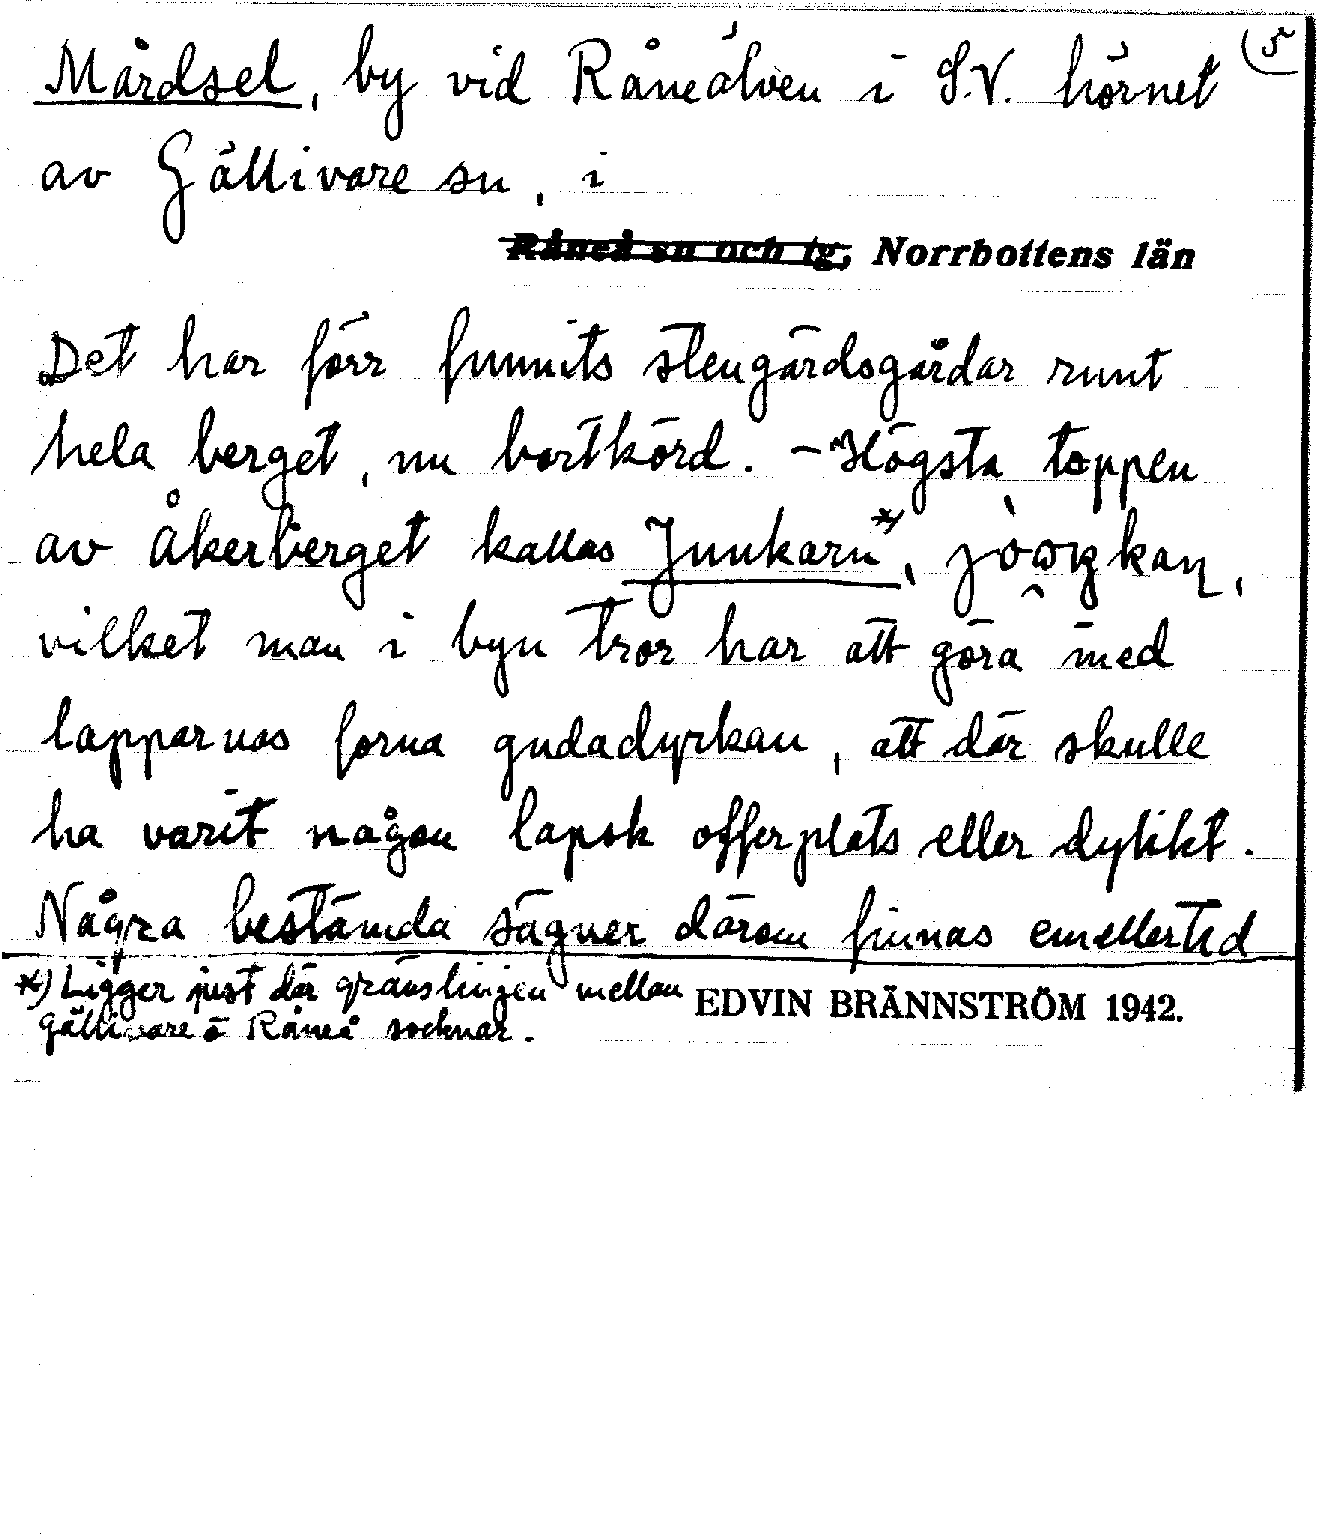 Mårdsel, by vid Råneälven i S.V. hörnet (5
av Gällivare sn, i
Råneå sn och tg, Norrbottens län
Det har förr funnits stengärdsgårdar runt
hela berget, nu bortkörd. – Högsta toppen
av Åkerberget kallas Junkarn*),
vilket man i byn tror har att göra med
lapparnas forna gudadyrkan, att där skulle
ha varit någon lapsk offerplats eller dylikt.
Några bestämda sägner därom finnas emellertid
*) Ligger just där gränslinjen mellan
Gällivare o Råneå socknar.
EDVIN BRÄNNSTRÖM 1942.